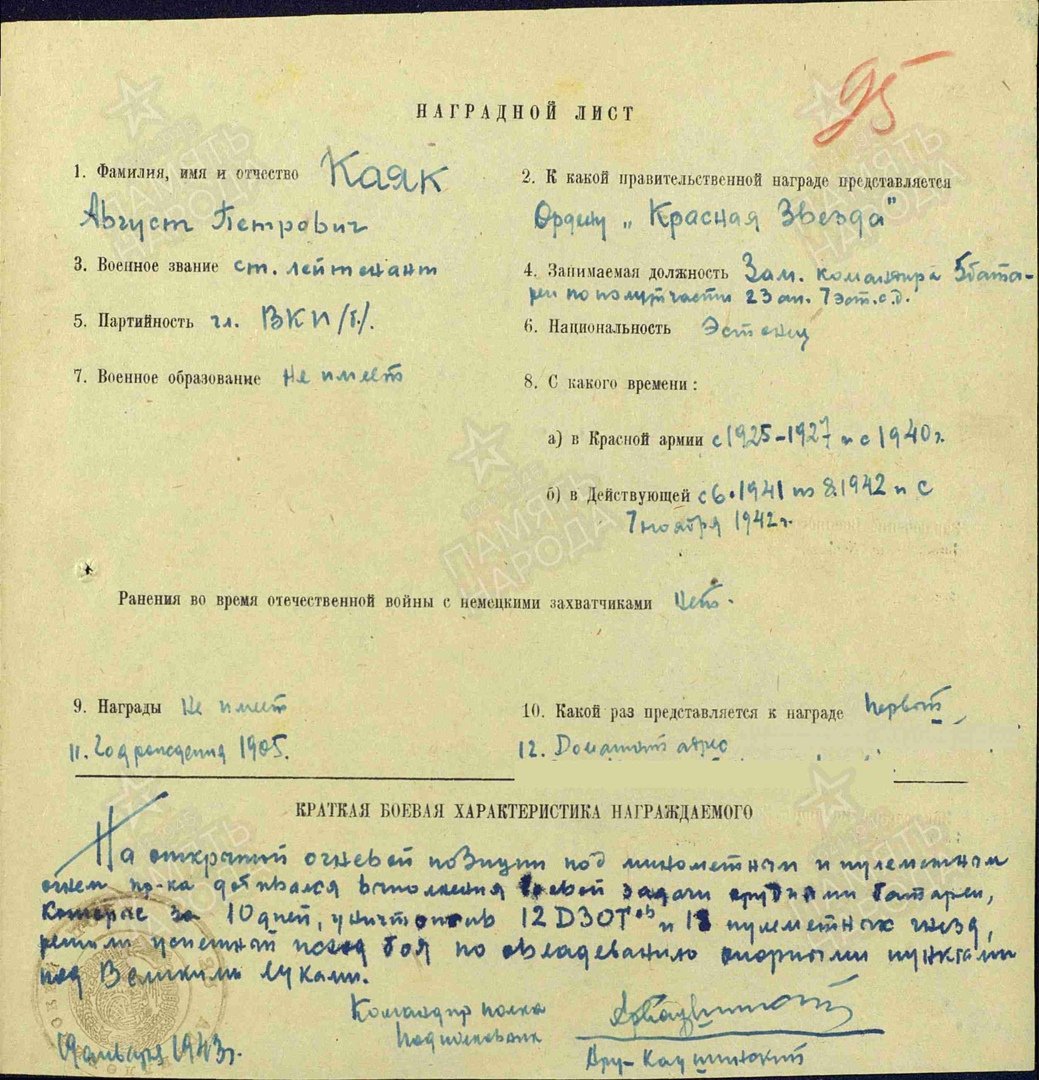 95
НАГРАДНОЙ ЛИСТ
1. Фамилия, имя и отчество Каяк
Август Петрович
2. К какой правительственной награде представляется
Ордену „Красная Звезда"
3. Военное звание ст. лейтенант
4. Занимаемая должность Зам. командира 5 бата-
реи по политчасти 23 ап. 7 эст. с.д.
5. Партийность чл. ВКП/б/.
6. Национальность Эстонец
7. Военное образование Не имеет
8. С какого времени:
а) в Красной армии с 1925-1927 и с 1940 г.
б) в Действующей с 6.1941 по 8.1942 и с
7 ноября 1942 г.
Ранения во время отечественной войны с немецкими захватчиками Нет.
9. Награды Не имеет
10. Какой раз представляется к награде Первый
11. Год рождения 1905.
12. Домашний адрес
КРАТКАЯ БОЕВАЯ ХАРАКТЕРИСТИКА НАГРАЖДАЕМОГО
На открытой огневой позиции под минометным и пулеметным
огнем пр-ка добивался выполнения боевой задачи орудиями батареи,
которые за 10 дней, уничтожив 12 ДЗОТов и 18 пулеметных гнезд,
решили успешный исход боя по овладеванию опорными пунктами
под Великими Луками.
Командир полка
Подполковник
Ару-Каушинский
19 января 1943 г.
ПАМЯТЬ НАРОДА